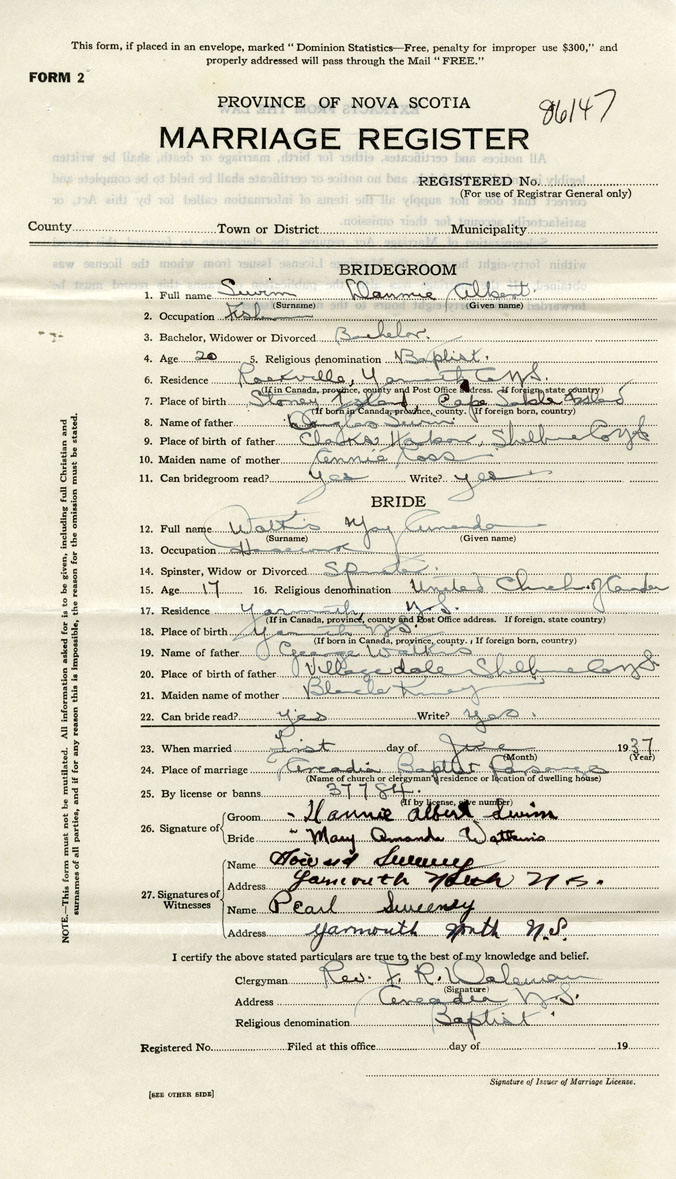 This form, if placed in an envelope, marked "Dominion Statistics—Free, penalty for improper use $300," and
properly addressed will pass through the Mail "FREE."
FORM 2
PROVINCE OF NOVA SCOTIA
86147
MARRIAGE REGISTER
REGISTERED No.
(For use of Registrar General only)
County Town or District Municipality
BRIDEGROOM
1. Full name Swim Dannie Albert.
(Surname) (Given name)
2. Occupation
3. Bachelor, Widower or Divorced Bachelor.
4. Age 20 5. Religious denomination Baptist.
6. Residence Rockville, Yarmouth Co. N.S.
(If in Canada, province, county and Post Office address. If foreign, state country)
7. Place of birth Stoney Island Cape Sable Island
(If born in Canada, province, county. If foreign born, country)
8. Name of father Douglas Swim
9. Place of birth of father Clarks Harbor, Shelburne Co. N.S.
10. Maiden name of mother Annie Ross
11. Can bridegroom read? Yes Write? Yes
BRIDE
12. Full name Watkins May Amanda
(Surname) (Given name)
13. Occupation Housework
14. Spinster, Widow or Divorced Spinster.
15. Age 17 16. Religious denomination United Church of Canada
17. Residence Yarmouth, N.S.
(If in Canada, province, county and Post Office address. If foreign, state country)
18. Place of birth Yarmouth N.S.
(If born in Canada, province, county. If foreign born, country)
19. Name of father George Watkins
20. Place of birth of father Villagedale Shelburne Co. N.S.
21. Maiden name of mother
22. Can bride read? Yes Write? Yes.
23. When married First day of June 1937
(Month) (Year)
24. Place of marriage Arcadia Baptist Parsonage
(Name of church or clergyman's residence or location of dwelling house)
25. By license or banns 37784.
(If by license, give number)
26. Signature of Groom Dannie Albert Swim
Bride Mary Amanda Watkins
27. Signatures of Witnesses
Name Howard Sweeney
Address Yarmouth North N.S.
Name Pearl Sweeney
Address Yarmouth North N.S.
I certify the above stated particulars are true to the best of my knowledge and belief.
Clergyman Rev. F. R.
(Signature)
Address Arcadia N.S.
Religious denomination Baptist
Registered No. Filed at this office day of 19
Signature of Issuer of Marriage License.
[SEE OTHER SIDE]
NOTE.—This form must not be mutilated. All information asked for is to be given, including full Christian and
surnames of all parties, and if for any reason this is impossible, the reason for the omission must be stated.